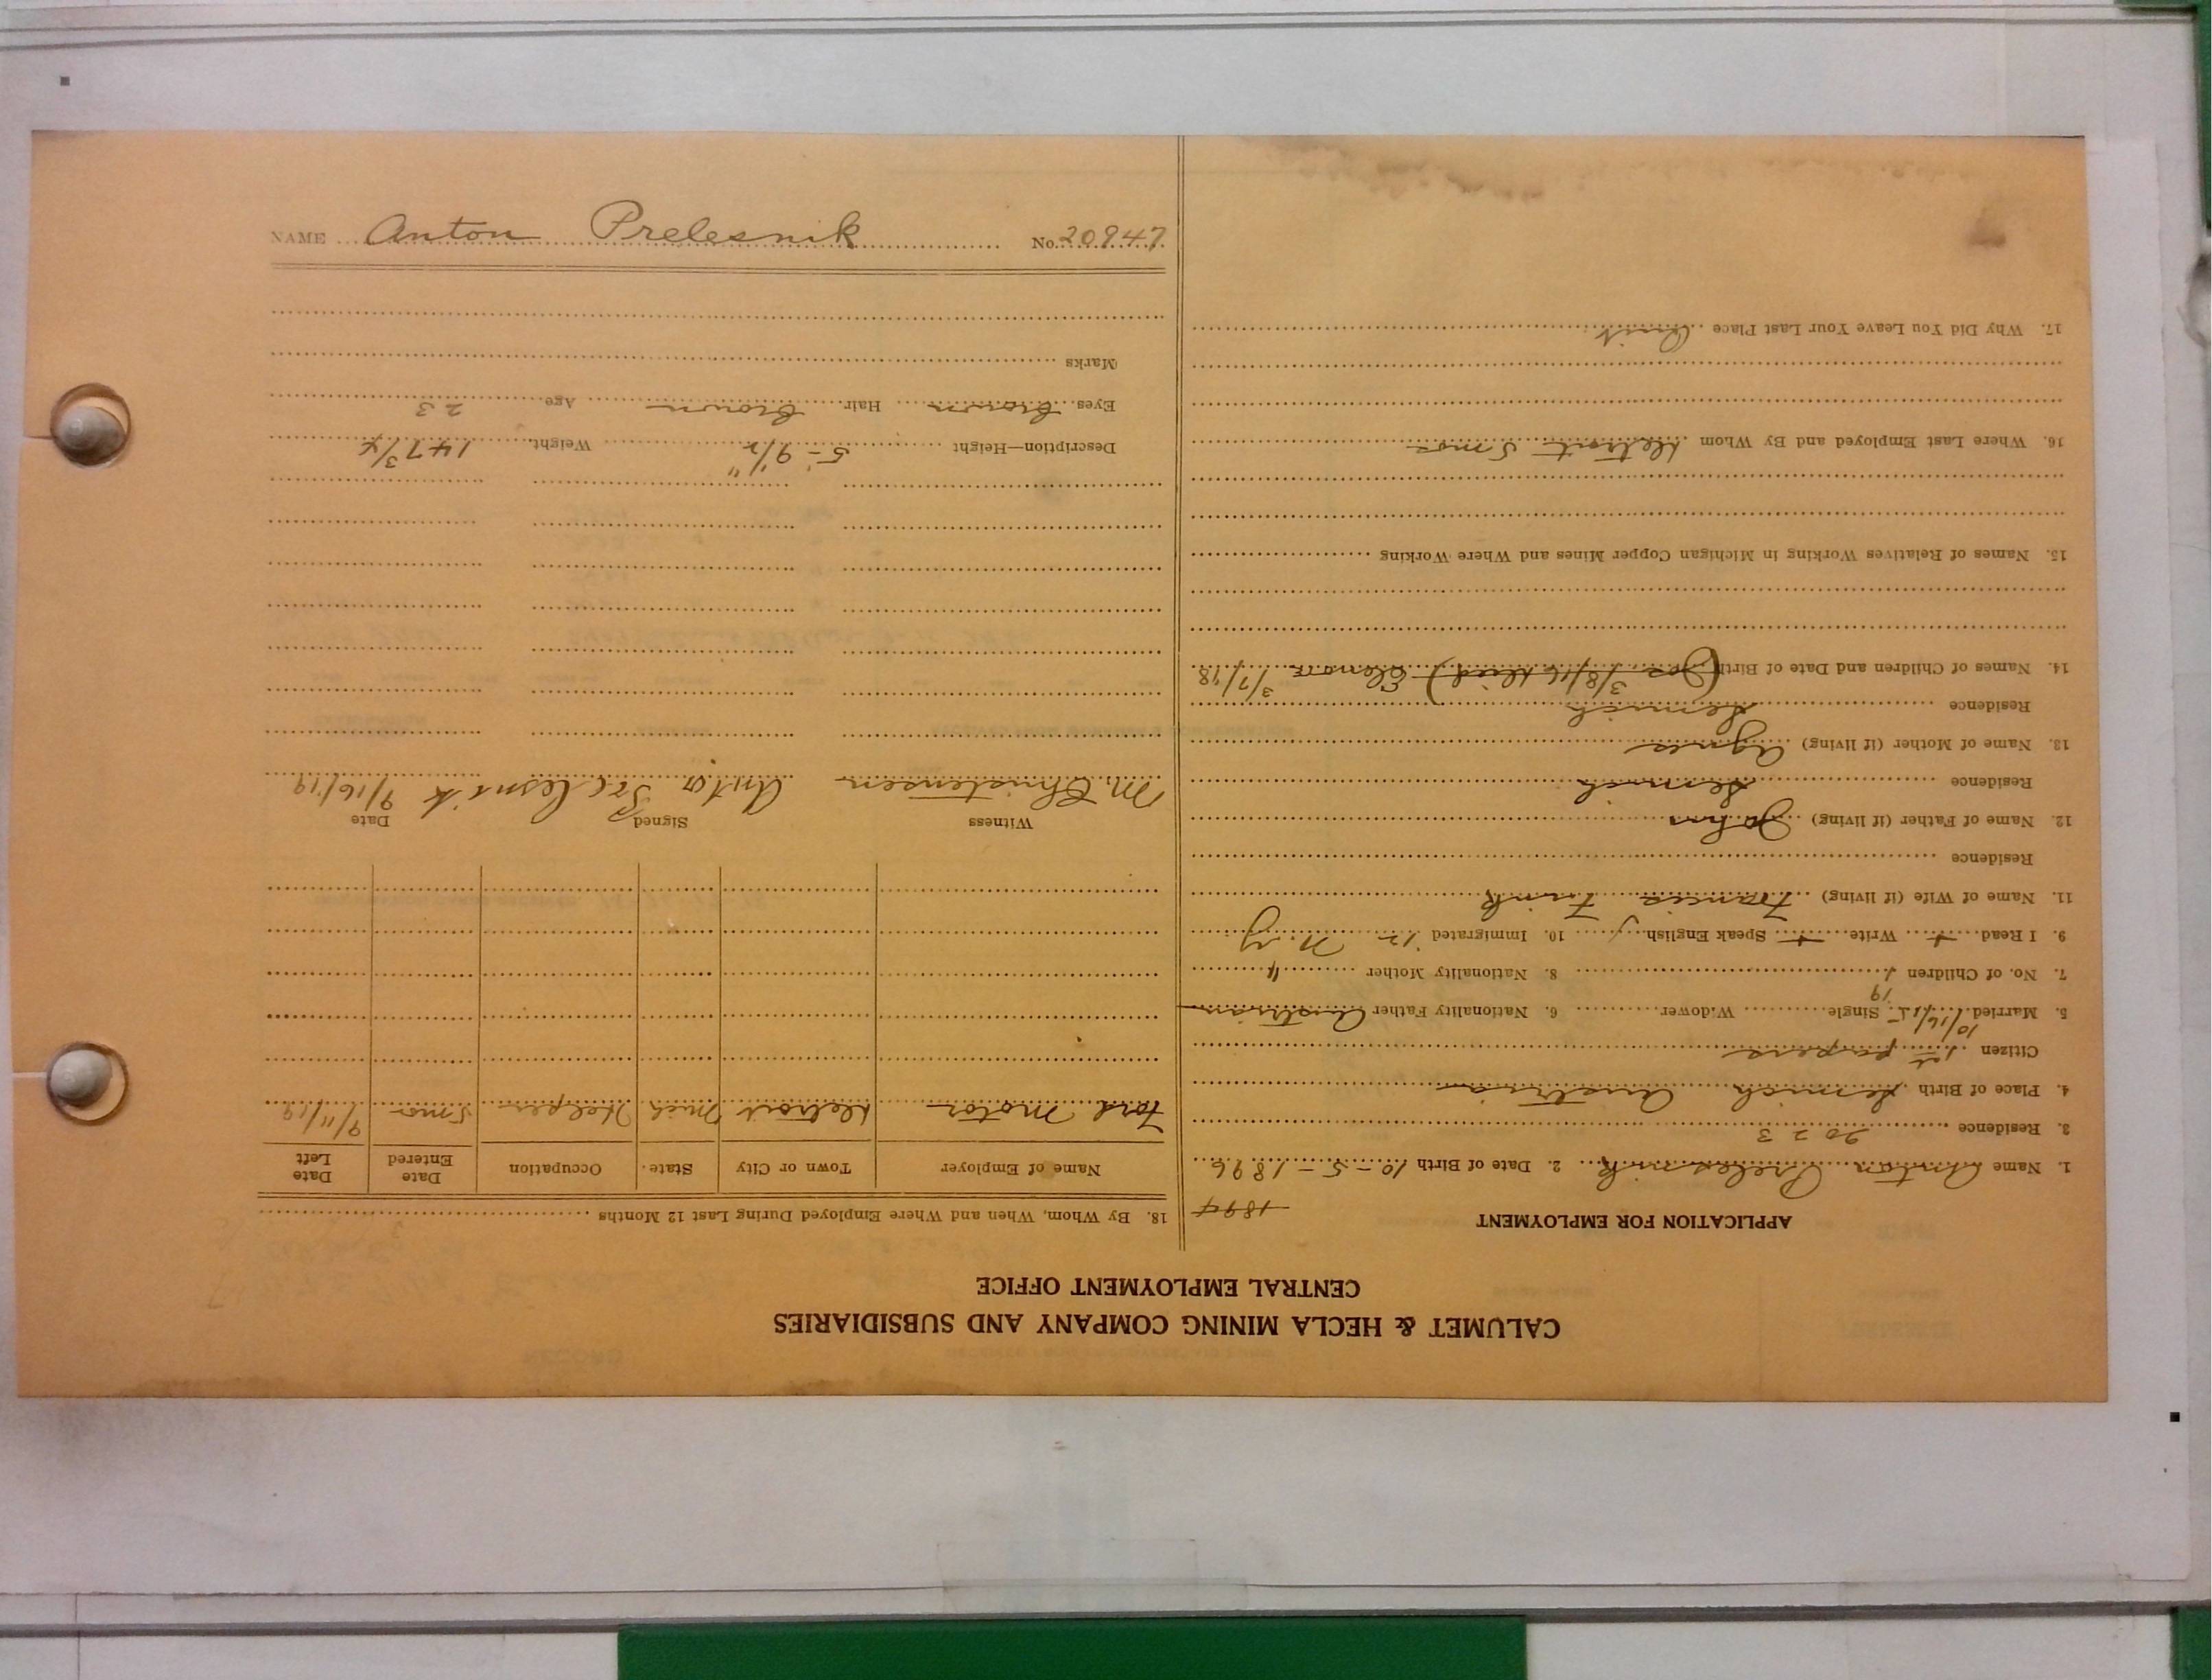 CALUMET & HECLA MINING COMPANY AND SUBSIDIARIES
CENTRAL EMPLOYMENT OFFICE
APPLICATION FOR EMPLOYMENT
1894
1. Name Anton Prelesnik 2. Date of Birth 10-5-1896
3. Residence 2023
4. Place of Birth Semich Austria
Citizen 1st papers
5. Married 10/16/15 Single Widower 6. Nationality Father Austrian
19
7. No. of Children 1 8. Nationality Mother "
9. I Read + Write + Speak English 10. Immigrated '12 N.Y
11. Name of Wife (if living) Francis Frink
Residence
12. Name of Father (if living) John
Residence Semich
13. Name of Mother (if living) Agnes
Residence Semich
14. Names of Children and Date of Birth (Joe 3/8/16 died) Elenore 3/7/18
15. Names of Relatives Working in Michigan Copper Mines and Where Working
16. Where Last Employed and By Whom Detroit 5 mos
17. Why Did You Leave Your Last Place Quit
18. By Whom, When and Where Employed During Last 12 Months
Name of Employer Town or City State. Occupation Date Entered Date Left
Ford Motor Detroit Mich Helper 5 mos 9/11/19
Witness Signed Date
M. Christensen Anton Prelesnik 9/16/19
Description—Height 5-9 1/2" Weight 147 3/4
Eyes Brown Hair Brown Age 23
Marks
NAME Anton Prelesnik No. 20947